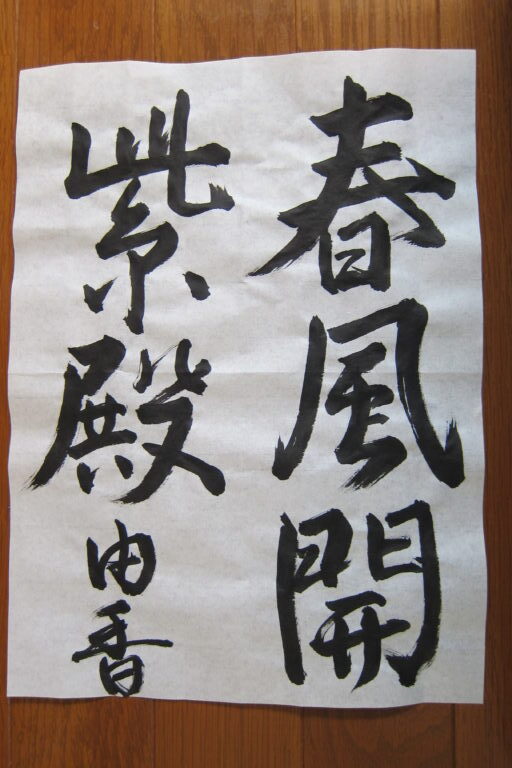 春風開
紫殿
由香